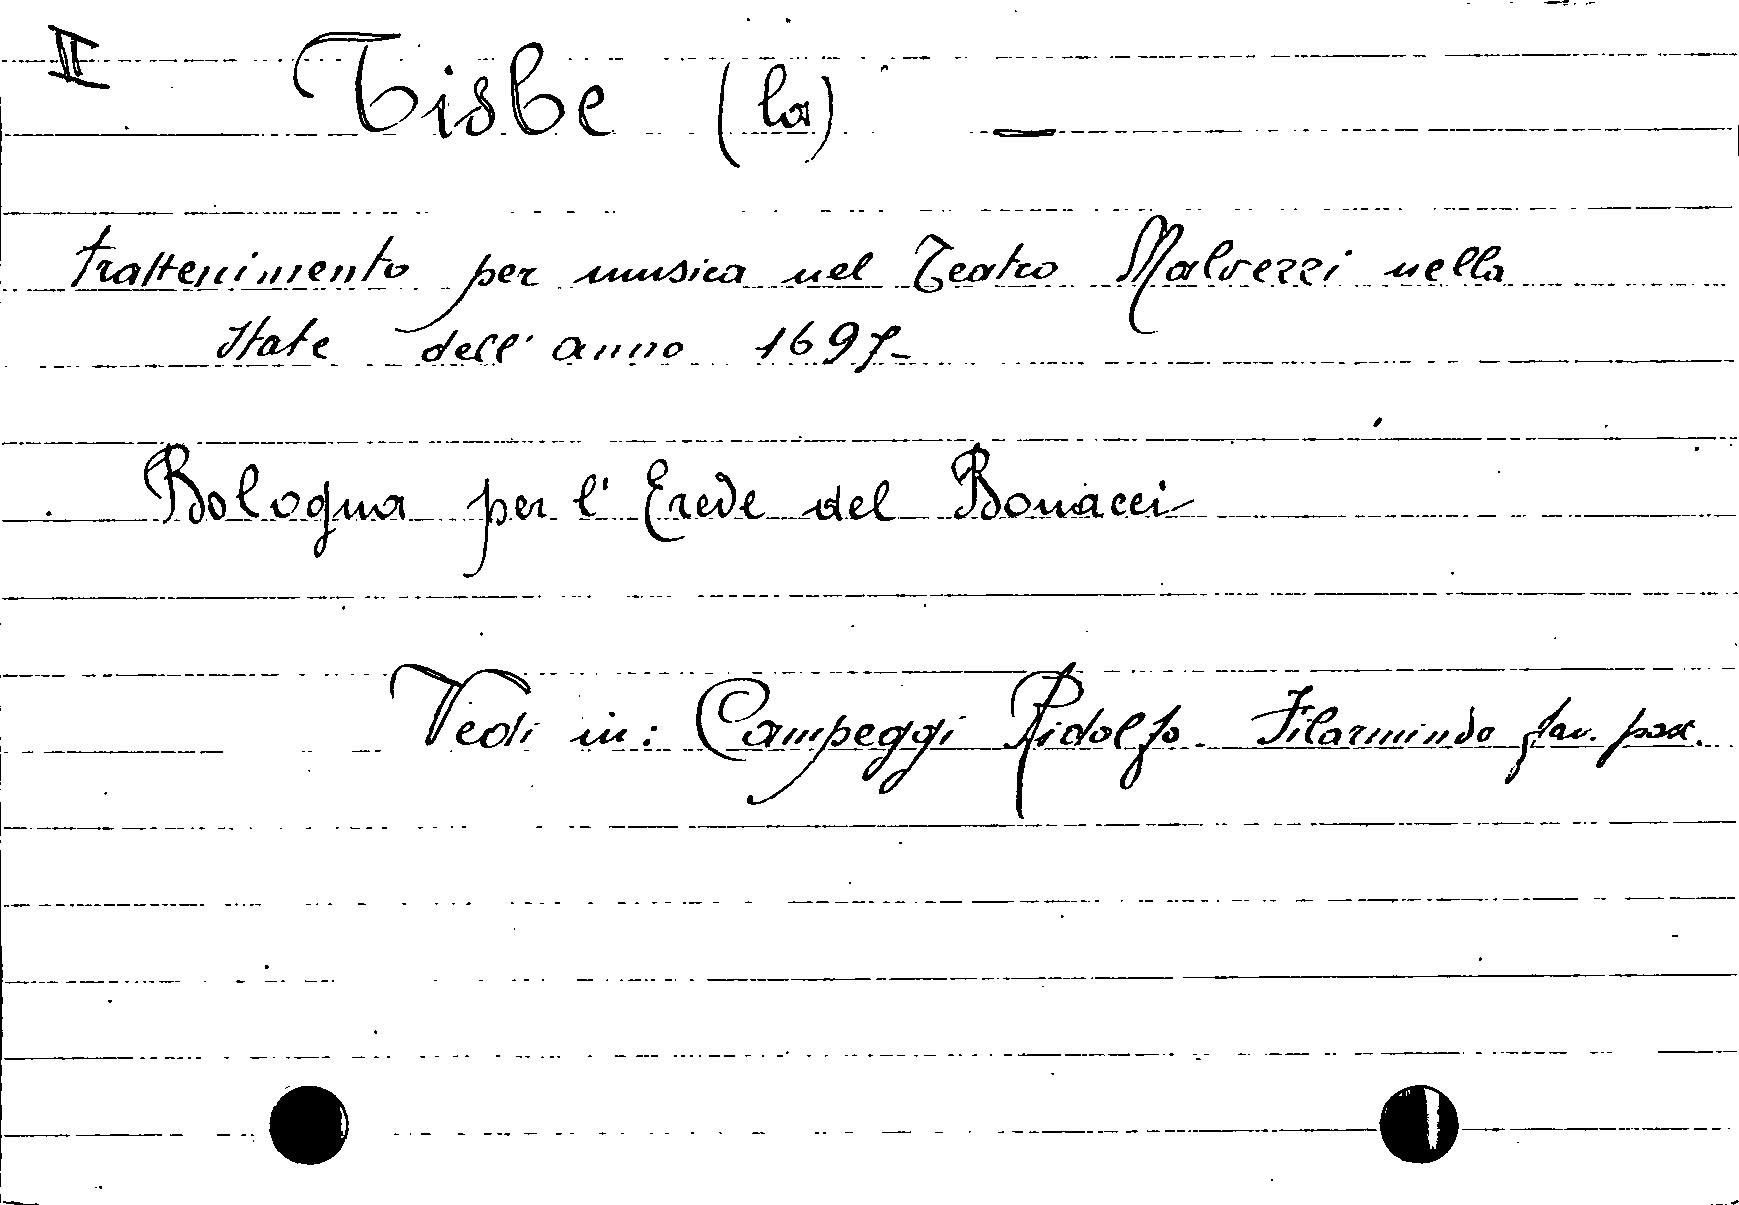 II Tisbe (la) —
trattenimento per musica nel Teatro Malvezzi nella
State dell'anno 1697-
Bologna per l'Erede del Bonacci
Vedi in: Campeggi Ridolfo. Filarmindo fav. past.